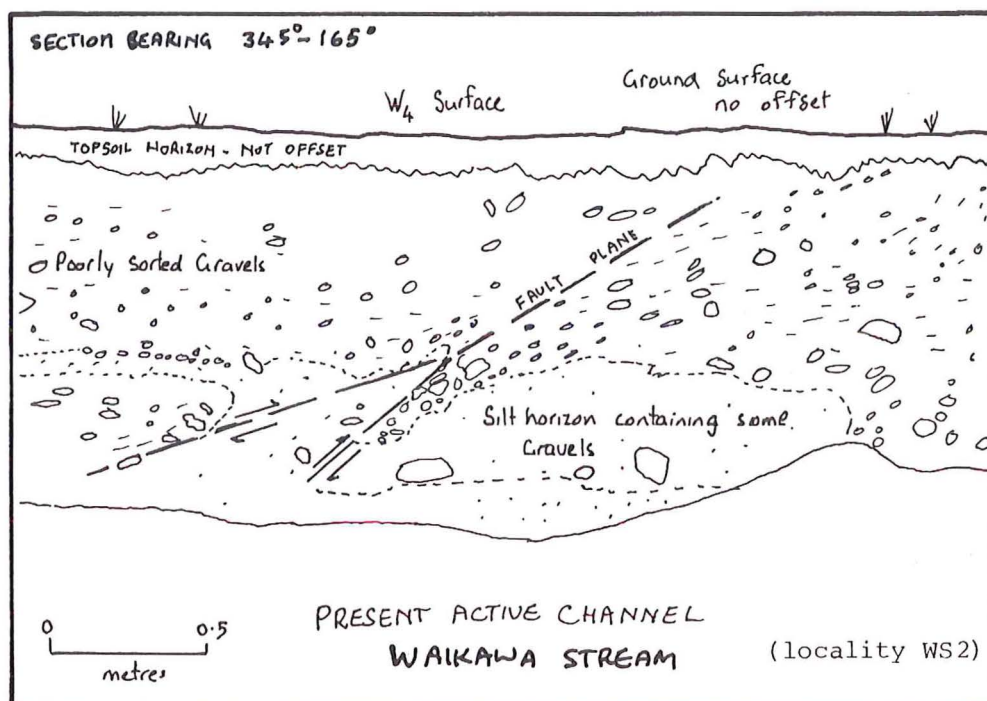 SECTION BEARING 345°-165°
W4 Surface
Ground Surface
no offset
TOPSOIL HORIZON - NOT OFFSET
Poorly Sorted Gravels
FAULT PLANE
Silt horizon containing some
Gravels
0 0.5
metres
PRESENT ACTIVE CHANNEL
WAIKAWA STREAM
(locality WS2)